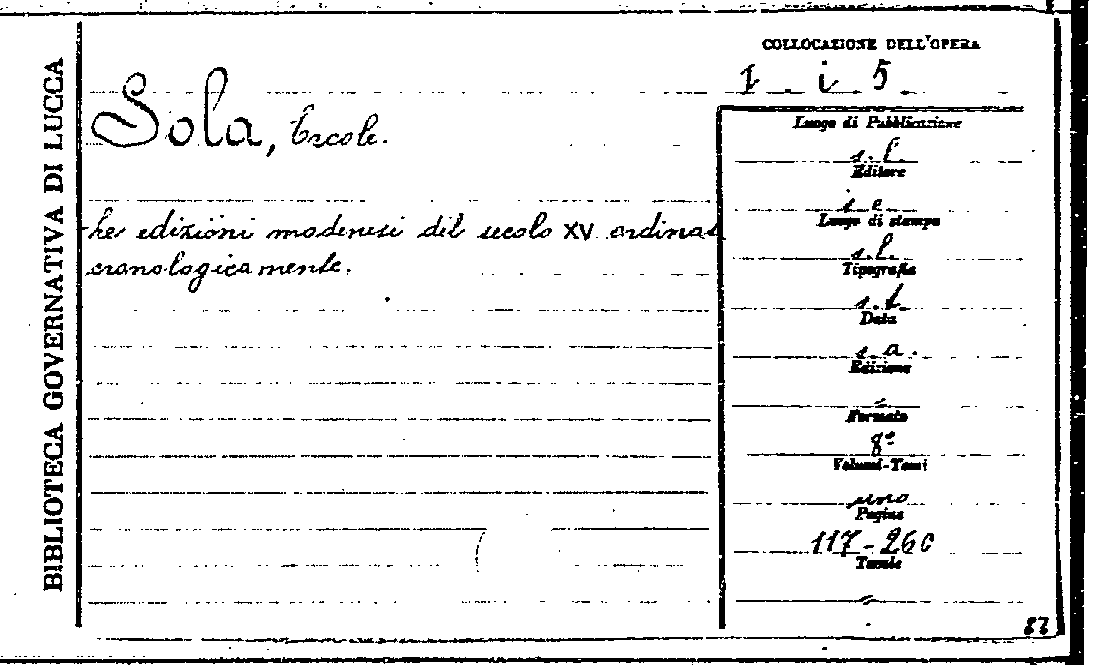 BIBLIOTECA GOVERNATIVA DI LUCCA
COLLOCAZIONE DELL'OPERA
I . i . 5 .
Sola, Ercole.
Le edizioni modenesi del secolo XV ordinat
cronologicamente.
Luogo di Pubblicazione
s. l.
Editore
s. e.
Luogo di stampa
s. l.
Tipografia
s. t.
Data
s. a.
Edizione
Formato
8º
Volumi-Tomi
uno
Pagine
117-260
Tavole